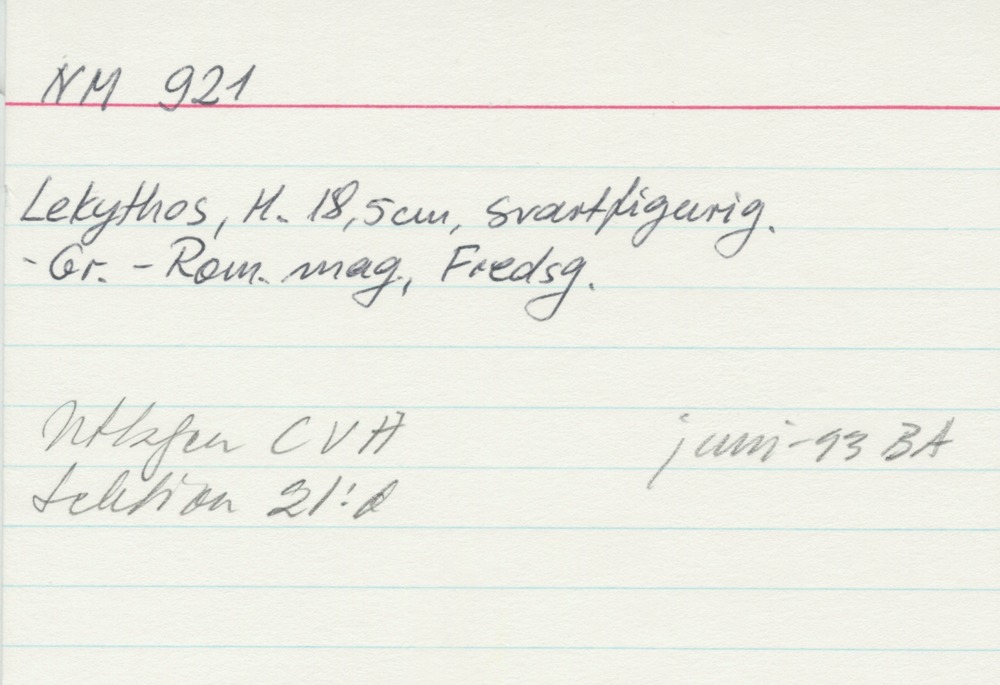 NM 921
Lekythos, H. 18,5cm, svartfigurig.
-Gr. -Rom. mag., Fredsg.
CVA juni-93 BA
sektion 21: